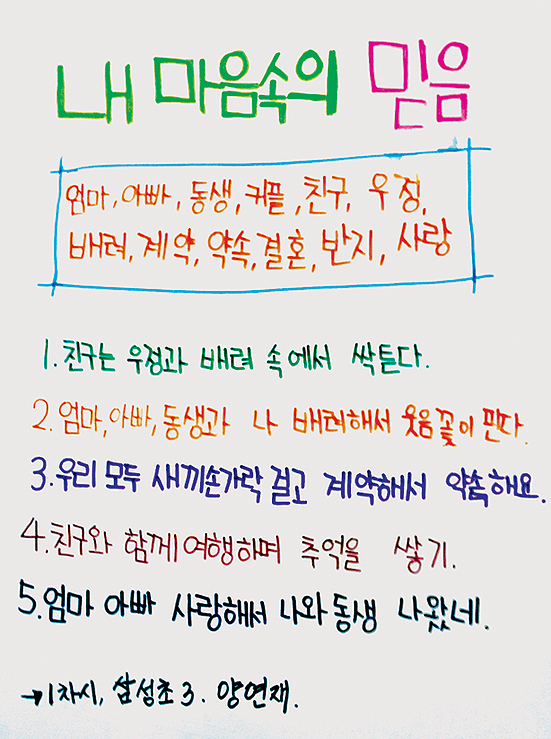 내 마음속의 믿음
엄마, 아빠, 동생, 커플, 친구, 우정,
배려, 계약, 약속, 결혼, 반지, 사랑
1. 친구는 우정과 배려 속에서 싹튼다.
2. 엄마, 아빠, 동생과 나 배려해서 웃음꽃이 핀다.
3. 우리 모두 새끼손가락 걸고 계약해서 약속해요.
4. 친구와 함께 여행하며 추억을 쌓기.
5. 엄마 아빠 사랑해서 나와 동생 나왔네.
→ 1차시, 삼성초 3. 양연재.